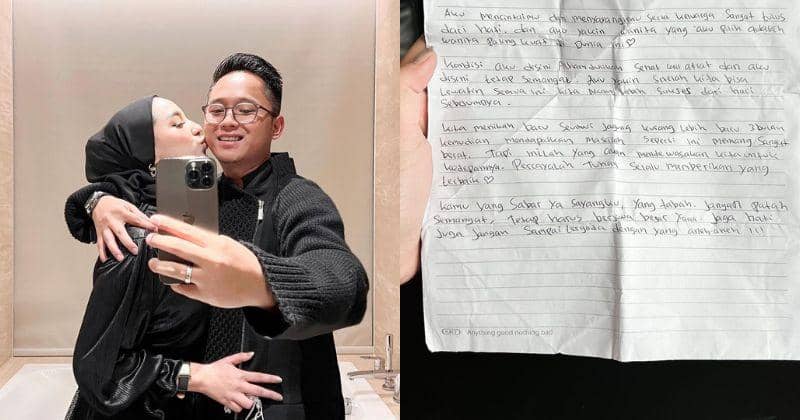 Aku mencintaimu dan menyayangimu serta keluarga sangat tulus
dari hati. dan aku yakin wanita yang aku pilih adalah
wanita paling kuat di Dunia ini ♡
Kondisi aku disini Alhamdulillah sehat wal afiat dan aku
disini tetap semangat. Aku yakin setelah kita bisa
lewatin semua ini kita akan lebih sukses dari hari
Sebelumnya.
Kita menikah baru seumur jagung kurang lebih baru 3 bulan
kemudian mendapatkan masalah seperti ini memang sangat
berat. Tapi inilah yang akan mendewasakan kita untuk
kedepannya. Percayalah Tuhan selalu memberikan yang
terbaik ♡
kamu yang Sabar ya Sayangku, yang tabah. Jangan patah
Semangat. Tetap harus berjiwa besar yaa. Jaga hati
Juga jangan Sampai tergoda dengan yang aneh-aneh !!!
Anything good nothing bad